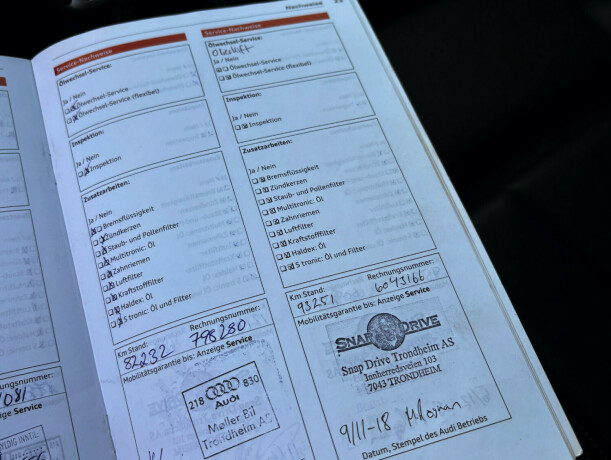 Nachweise
Service-Nachweise
Ölwechsel-Service:
Ja / Nein
Ölwechsel-Service
Ölwechsel-Service (flexibel)
Inspektion:
Ja / Nein
Inspektion
Zusatzarbeiten:
Ja / Nein
Bremsflüssigkeit
Zündkerzen
Staub- und Pollenfilter
Multitronic: Öl
Zahnriemen
Luftfilter
Kraftstofffilter
Haldex: Öl
S tronic: Öl und Filter
Km Stand:
Rechnungsnummer:
82232
798280
Mobilitätsgarantie bis: Anzeige Service
218
830
Audi
Møller Bil
Trondheim AS
Service-Nachweise
Ölwechsel-Service:
Ja / Nein
Ölwechsel-Service
Ölwechsel-Service (flexibel)
Inspektion:
Ja / Nein
Inspektion
Zusatzarbeiten:
Ja / Nein
Bremsflüssigkeit
Zündkerzen
Staub- und Pollenfilter
Multitronic: Öl
Zahnriemen
Luftfilter
Kraftstofffilter
Haldex: Öl
S tronic: Öl und Filter
Km Stand:
Rechnungsnummer:
93251
6043166
Mobilitätsgarantie bis: Anzeige Service
SNAP DRIVE
Snap Drive Trondheim AS
Innherredsveien 103
7043 TRONDHEIM
9/11-18
Datum, Stempel des Audi Betriebs
Rechnungsnummer:
1081
ge Service